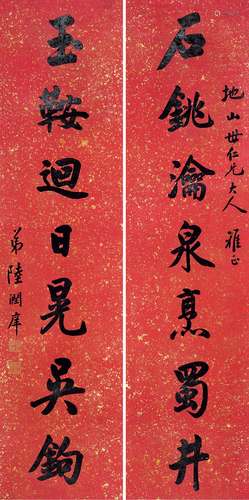 地山世仁兄大人 雅正
石銚瀹泉烹蜀井
玉鞍迴日晃吳鉤
弟陸潤庠